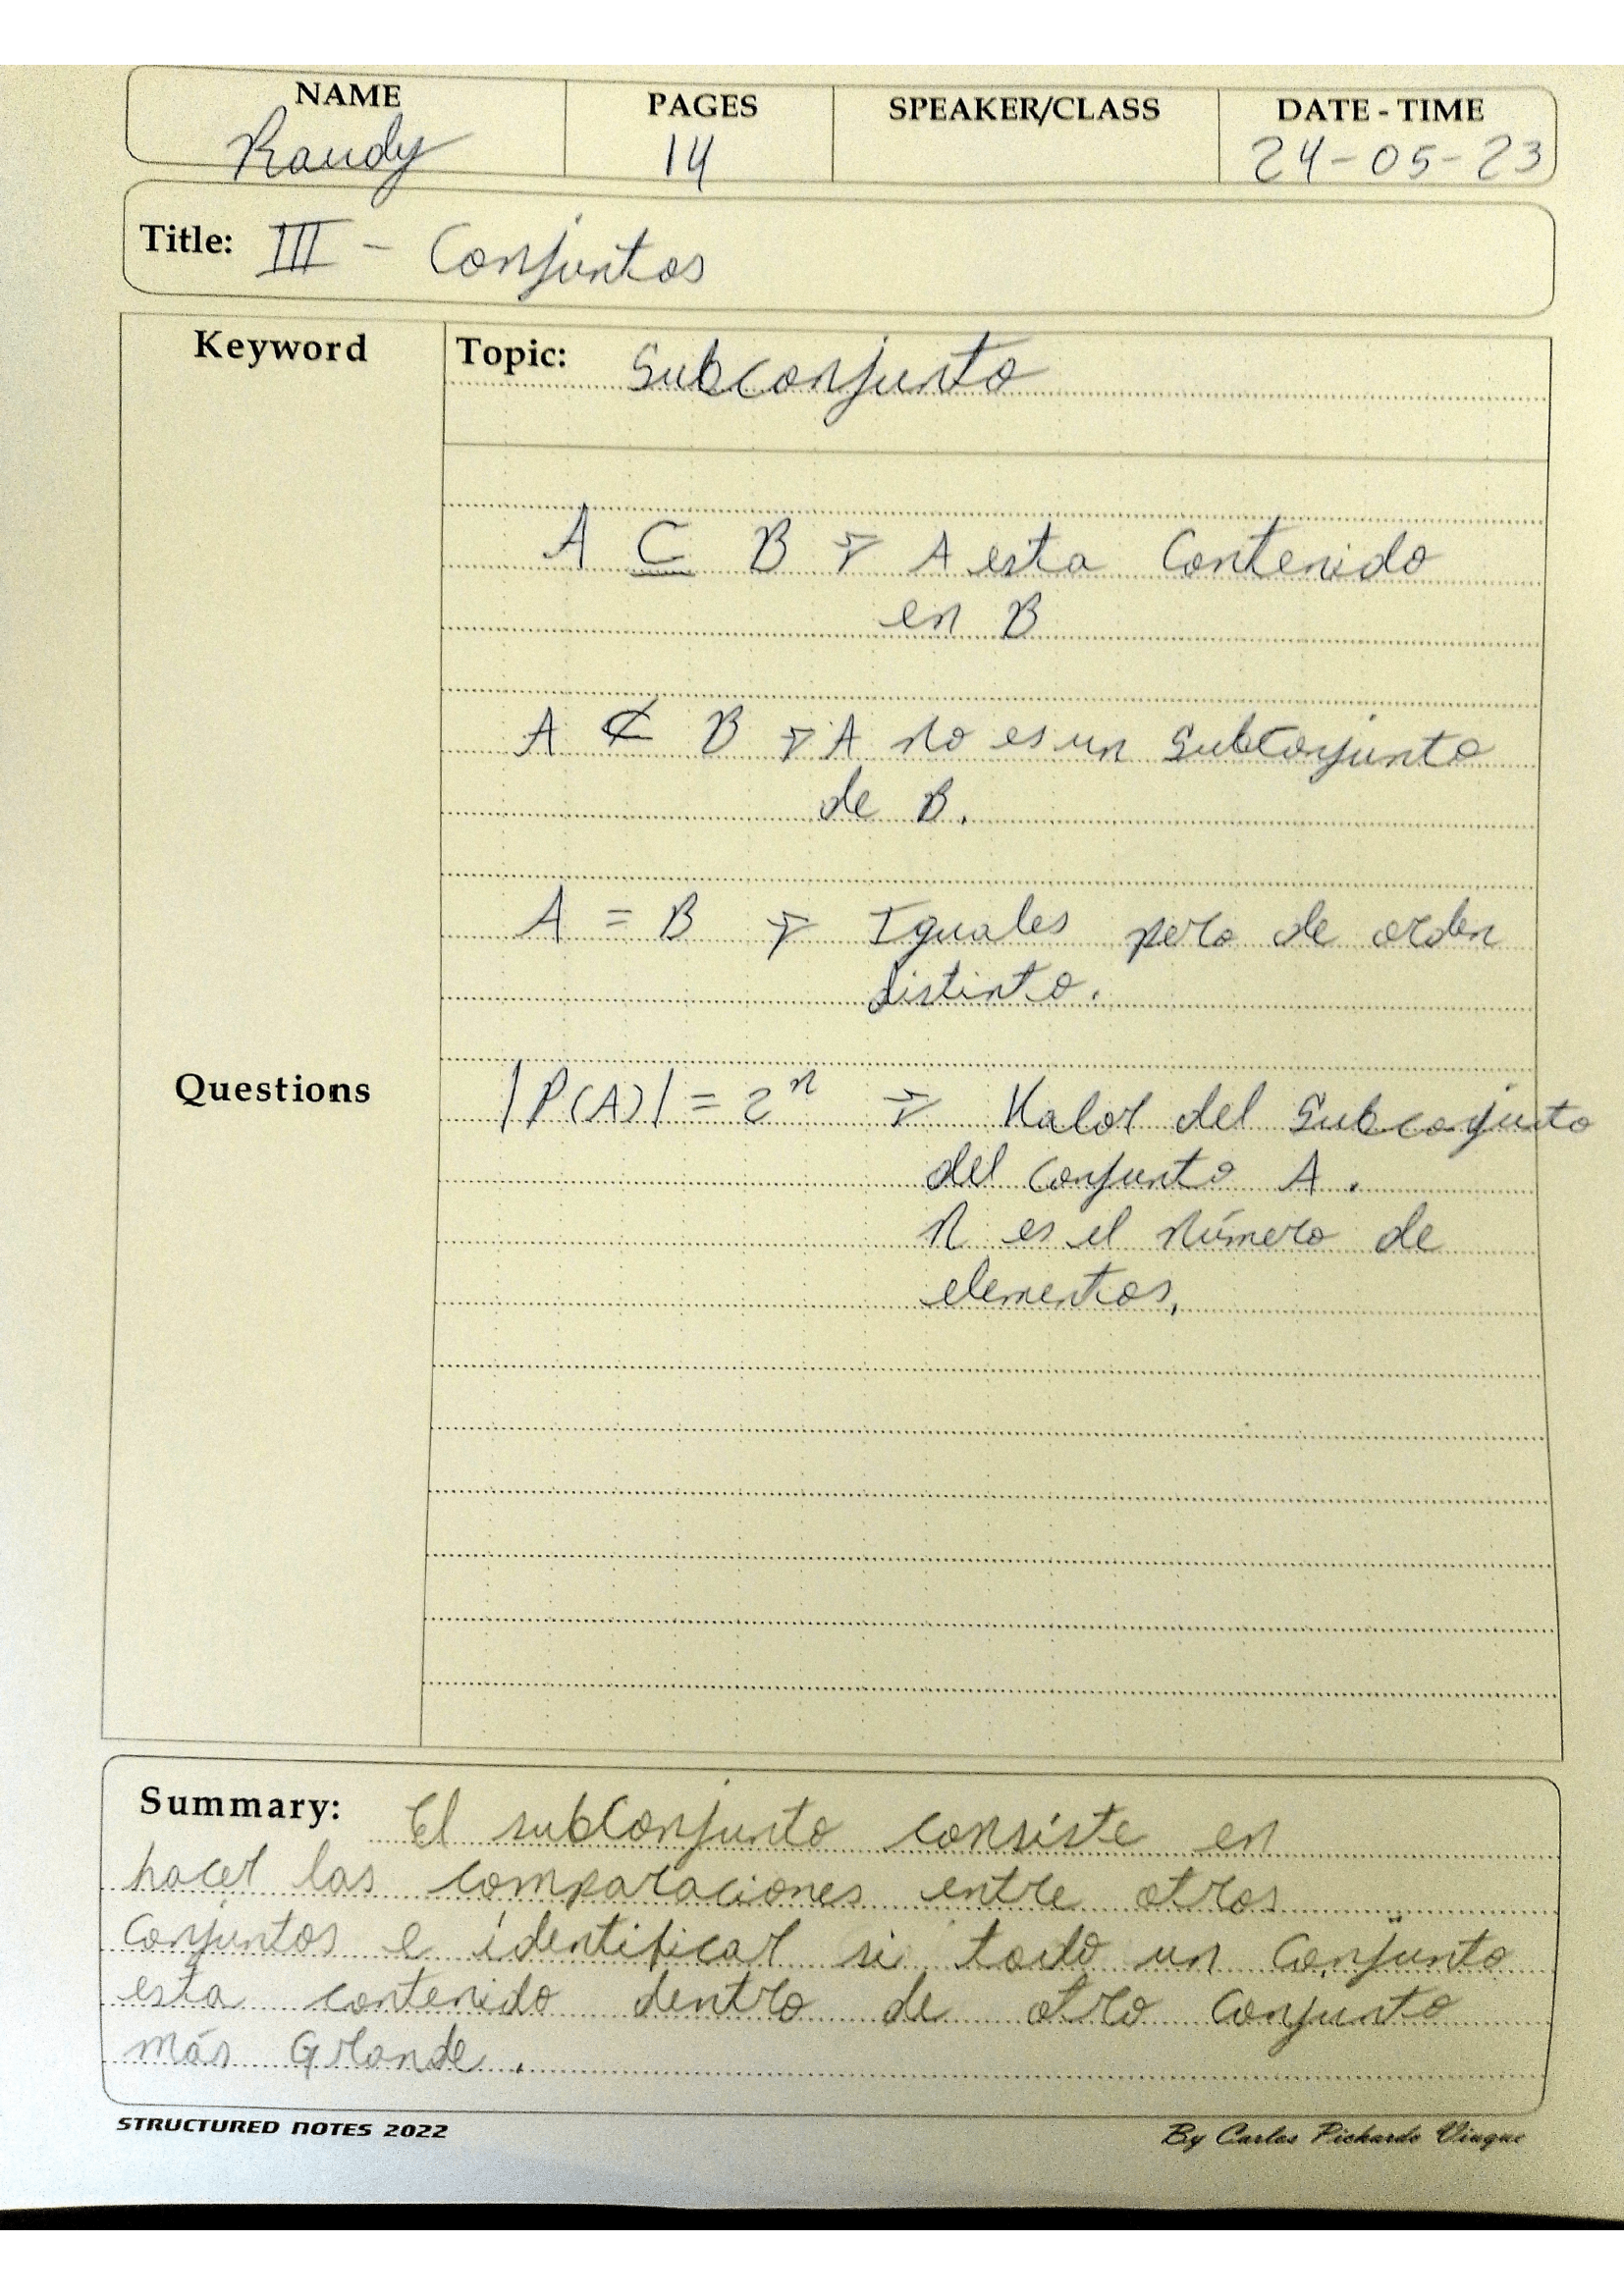 NAME PAGES SPEAKER/CLASS DATE - TIME
Randy 14 24-05-23
Title: III - Conjuntos
Keyword Topic: Subconjunto
A ⊆ B → A esta Contenido
en B
A ⊄ B → A no es un SubConjunto
de B.
A = B → Iguales pero de orden
distinto.
Questions |P(A)| = 2ⁿ → Valor del Subconjunto
del conjunto A.
n es el número de
elementos,
Summary: El subConjunto consiste en
hacer las comparaciones entre otros
Conjuntos e identificar si todo un Conjunto
esta contenido dentro de otro Conjunto
más Grande.
STRUCTURED NOTES 2022 By Carlos Pichardo Viuque